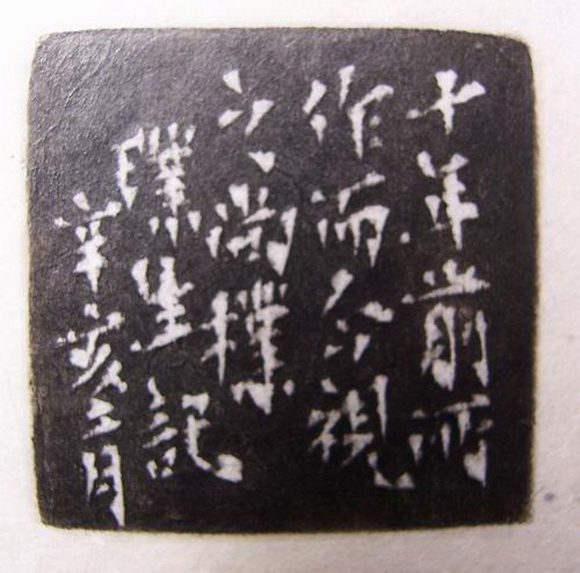 十年前所
作而今視
之尚樸
璞生記
辛亥二月